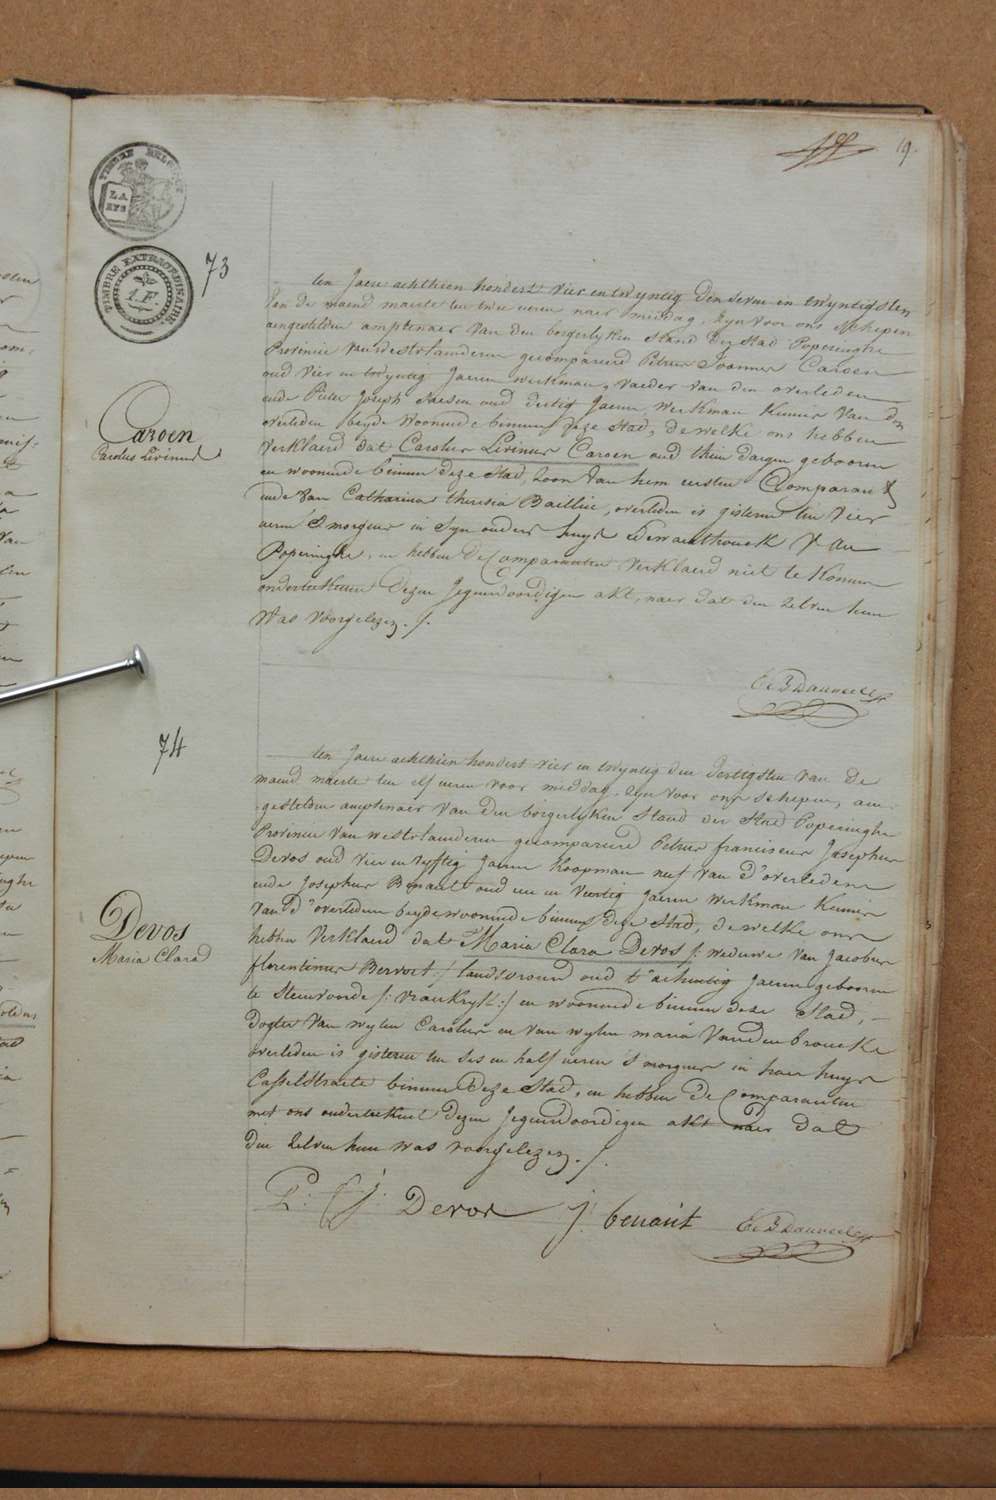 19.
TIMBRE
LA
TIMBRE EXTRAORDINAIRE.
1. F.
73
Caroen
Carolus Livinus
ten Jaere achthien hondert vier en twyntig den seven en twyntigsten
van de maend maerte ten twee ueren naer middag. Zyn voor ons schepen
aengestelden amptenaer van den borgerlyken stand der Stad Poperinghe
Provincie van westvlaenderen gecompareerd Petrus Joannes Caroen
oud vier en twyntig Jaeren werkman, vaeder van den overleden
ende Pieter Joseph oud dertig Jaeren, werkman kennis van den
overleden beyde woonende binnen deze Stad, dewelke ons hebben
verklaerd dat Carolus Livinus Caroen oud thien daegen gebooren
en woonende binnen deze Stad, zoon van hem eersten Comparant
ende van Catharina theresia Baillieu, overleden is gisteren ten vier
ueren 's morgens in Syn ouders huys van
Poperinghe. en hebben de Comparanten verklaerd niet te konnen
onderteekenen dezen Jegenwoordigen akt, naer dat den zelven hun
was voorgelezen ./.
74
Devos
Maria Clara
ten Jaere achthien hondert vier en twyntig den dertigsten van de
maend maerte ten elf ueren voor middag. Zyn voor ons schepen, aen-
gestelden amptenaer van den borgerlyken Stand der Stad Poperinghe
Provincie van westvlaenderen gecompareerd Petrus franciscus Josephus
Devos oud vier en vyftig Jaeren koopman nef van d'overledene
ende Josephus Benault oud een en veertig Jaeren werkman kennis
van d'overledene beyde woonende binnen deze Stad, dewelke ons
hebben verklaerd dat Maria Clara Devos /: weduwe van Jacobus
florentinus Bervoet :/ landsvrouw oud t'achentig Jaeren gebooren
te Steenvoorde /: vrankryk :/ en woonende binnen deze Stad, -
dogter van wylen Carolus en van wylen maria Vandenbroucke
overleden is gisteren ten ses en half ueren 's morgens in haer huys
Casselstraete binnen deze Stad, en hebben de Comparanten
met ons onderteekent dezen Jegenwoordigen akt naer dat
den zelven hun was voorgelezen ./.
P: f: j: Devos j: benault